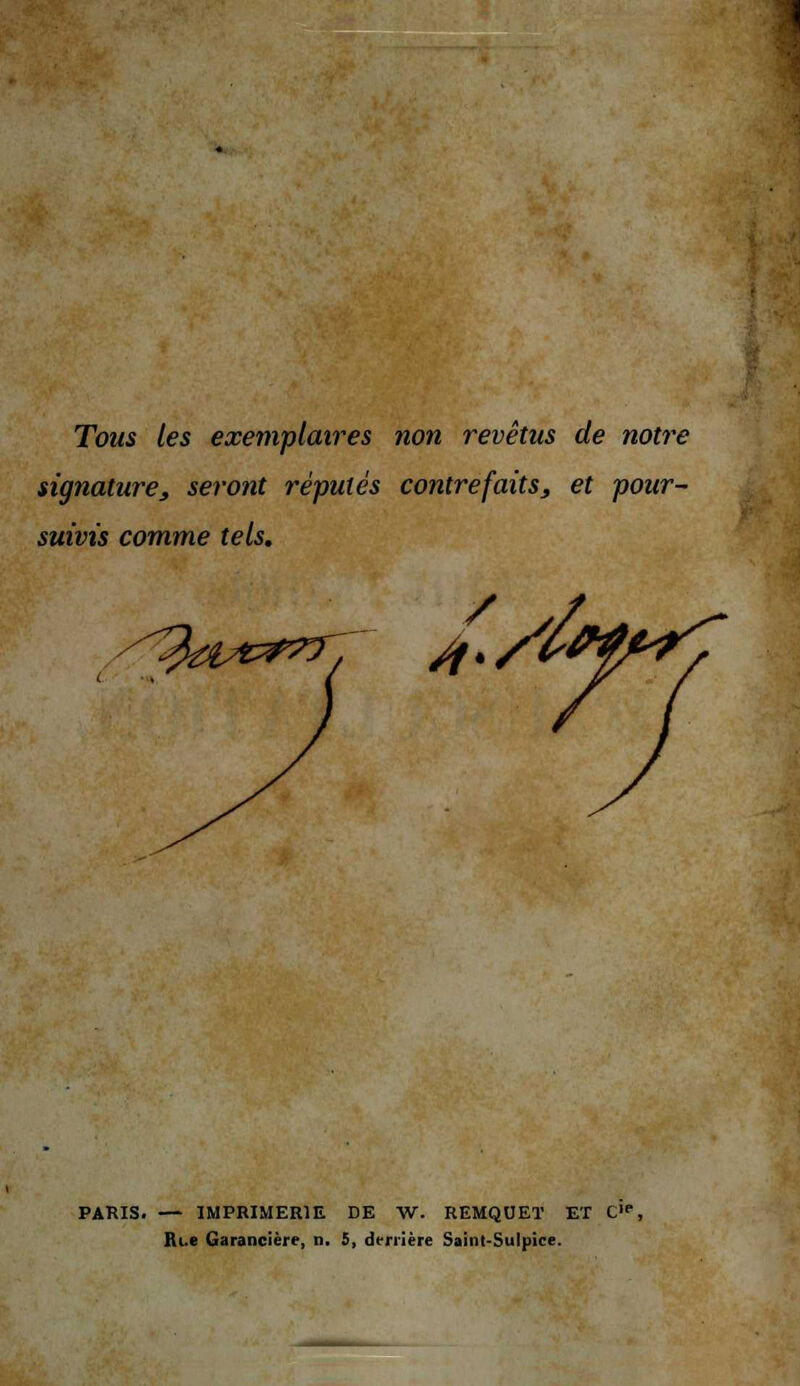 Tous les exemplaires non revêtus de notre
signature, seront réputés contrefaits, et pour-
suivis comme tels.
PARIS. — IMPRIMERIE DE W. REMQUET ET Cie,
Rue Garancière, n. 5, derrière Saint-Sulpice.